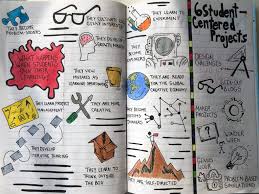 THEY BECOME
PROBLEM-SOLVERS
THEY CULTIVATE
THEY LEARN TO
EXPERIMENT
6 Student-
Centered
Projects
WHAT HAPPENS
WHEN STUDENTS
OWN THEIR
LEARNING?
THEY DEVELOP A
GROWTH
MINDSET
THEY BECOME
DESIGN
CHALLENGES
THEY VIEW
MISTAKES AS
LEARNING
OPPORTUNITIES
THEY ARE READY
FOR THE GLOBAL
CREATIVE ECONOMY
GEEK-OUT
BLOGS
THEY LEARN PROJECT
MANAGEMENT
THEY ARE MORE
CREATIVE
THEY BECOME
MAKER
PROJECTS
WONDER
WEEK
THEY DEVELOP
ITERATIVE THINKING
THEY LEARN TO
THINK OUTSIDE
THE BOX
THEY ARE SELF-DIRECTED
GENIUS
HOUR
PROBLEM-BASED
SIMULATIONS